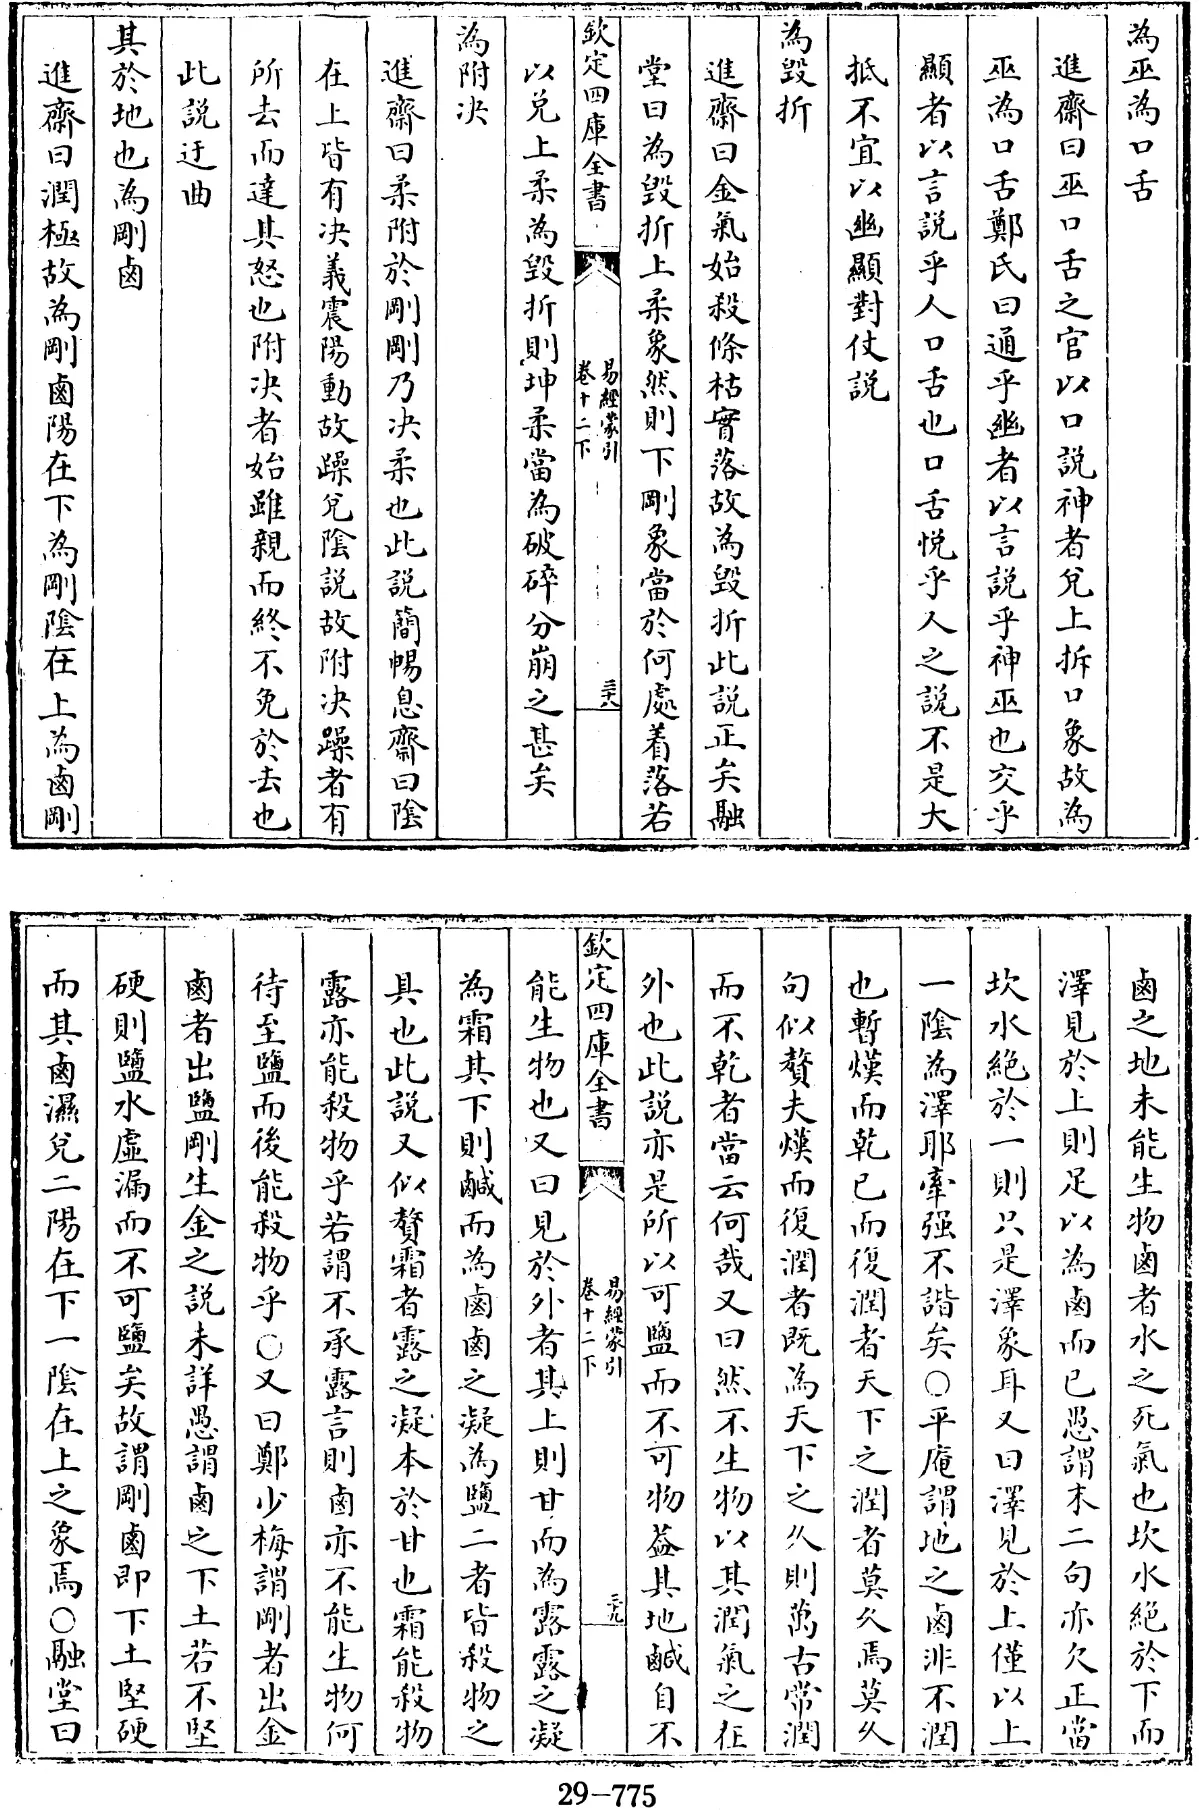 為巫為口舌
進齋曰巫口舌之官以口説神者兌上拆口象故為
巫為口舌鄭氏曰通乎幽者以言説乎神巫也交乎
顯者以言説乎人口舌也口舌悦乎人之説不是大
抵不宜以幽顯對仗説
為毁折
進齋曰金氣始殺條枯實落故為毁折此説正矣融
堂曰為毁折上柔象然則下剛象當於何處着落若
欽定四庫全書
易經蒙引
卷十二下
三十八
以兌上柔為毁折則坤柔當為破碎分崩之甚矣
為附决
進齋曰柔附於剛剛乃决柔也此説簡暢息齋曰陰
在上皆有决義震陽動故躁兌陰説故附决躁者有
所去而達其怒也附决者始雖親而終不免於去也
此説迂曲
其於地也為剛鹵
進齋曰潤極故為剛鹵陽在下為剛陰在上為鹵剛
鹵之地未能生物鹵者水之死氣也坎水絶於下而
澤見於上則足以為鹵而已愚謂末二句亦欠正當
坎水絶於一則只是澤象耳又曰澤見於上僅以上
一陰為澤耶牽强不諧矣○平庵謂地之鹵非不潤
也暫熯而乾已而復潤者天下之潤者莫久焉莫久
句似贅夫熯而復潤者既為天下之久則萬古常潤
而不乾者當云何哉又曰然不生物以其潤氣之在
外也此説亦是所以可鹽而不可物葢其地鹹自不
欽定四庫全書
易經蒙引
卷十二下
三十九
能生物也又曰見於外者其上則甘而為露露之凝
為霜其下則鹹而為鹵鹵之凝為鹽二者皆殺物之
具也此説又似贅霜者露之凝本於甘也霜能殺物
露亦能殺物乎若謂不承露言則鹵亦不能生物何
待至鹽而後能殺物乎○又曰鄭少梅謂剛者出金
鹵者出鹽剛生金之説未詳愚謂鹵之下土若不堅
硬則鹽水虛漏而不可鹽矣故謂剛鹵即下土堅硬
而其鹵濕兌二陽在下一陰在上之象焉○融堂曰
29-775